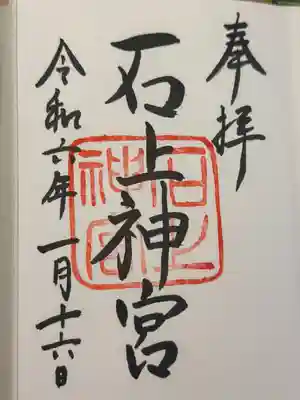 奉拝
石上神宮
令和六年一月十六日
石上
神宮